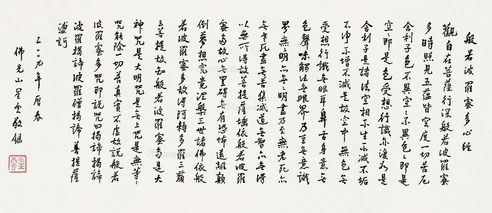 般若波羅蜜多心經
觀自在菩薩行深般若波羅蜜
多時照見五蘊皆空度一切苦厄
舍利子色不異空空不異色色即是
空空即是色受想行識亦復如是
舍利子是諸法空相不生不滅不垢
不淨不增不減是故空中無色無
受想行識無眼耳鼻舌身意無
色聲味觸法無眼界乃至無意識
界無無明亦無無明盡乃至無老死亦
無老死盡無苦集滅道無智亦無得
以無所得故菩提薩埵依般若波羅
蜜多故心無罣礙無有恐怖遠離顛
倒夢想究竟涅槃三世諸佛依般
若波羅蜜多故得阿耨多羅三藐
三菩提故知般若波羅蜜多是大
神咒是大明咒是無上咒是無等等
咒能除一切苦真實不虛故說般若
波羅蜜多咒即說咒曰揭諦揭諦
波羅揭諦波羅僧揭諦菩提薩
婆訶
二〇〇九年曆春
佛光山星雲敬錄